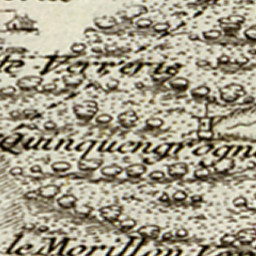 te Verrerie
Quinquengrogn
le Morillon